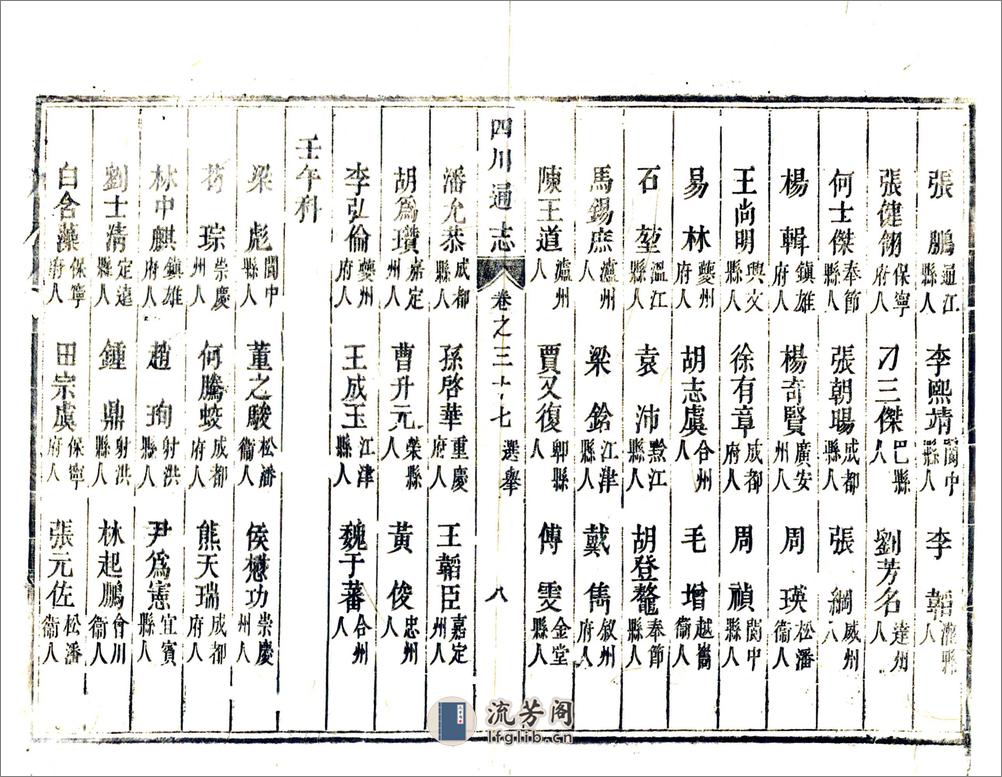 張鵬通江縣人 李熙靖閬中縣人 李韜灘縣人
張健翎保寧府人 刁三傑巴縣人 劉芳名達州人
何士傑奉節縣人 張朝暘成都縣人 張綱威州人
楊輯鎮雄府人 楊奇賢廣安州人 周瑛松潘衞人
王尚明興文縣人 徐有章成都府人 周禎閬中縣人
易林夔州府人 胡志虞合州人 毛增越嶲衞人
石堃溫江縣人 袁沛黔江縣人 胡登鼇奉節縣人
馬錫庶瀘州人 梁鉿江津縣人 戴雋叙州府人
陳王道瀘州人 賈又復郫縣人 傅雯金堂縣人
四川通志 卷之三十七 選舉 八
潘允恭成都縣人 孫啓華重慶府人 王韜臣嘉定州人
胡爲瓚嘉定州人 曹升元榮縣人 黃俊忠州人
李弘倫夔州府人 王成玉江津縣人 魏于蕃合州人
壬午科
梁彪閬中縣人 董之駿松潘衞人 侯懋功崇慶州人
琮崇慶州人 何騰蛟成都府人 熊天瑞成都府人
林中麒鎮雄府人 趙珣射洪縣人 尹爲憲宜賓縣人
劉士清定遠縣人 鍾鼎射洪縣人 林起鵬會川衞人
白含藻保寧府人 田宗虞保寧府人 張元佐松潘衞人
流芳阁
lfglib.cn